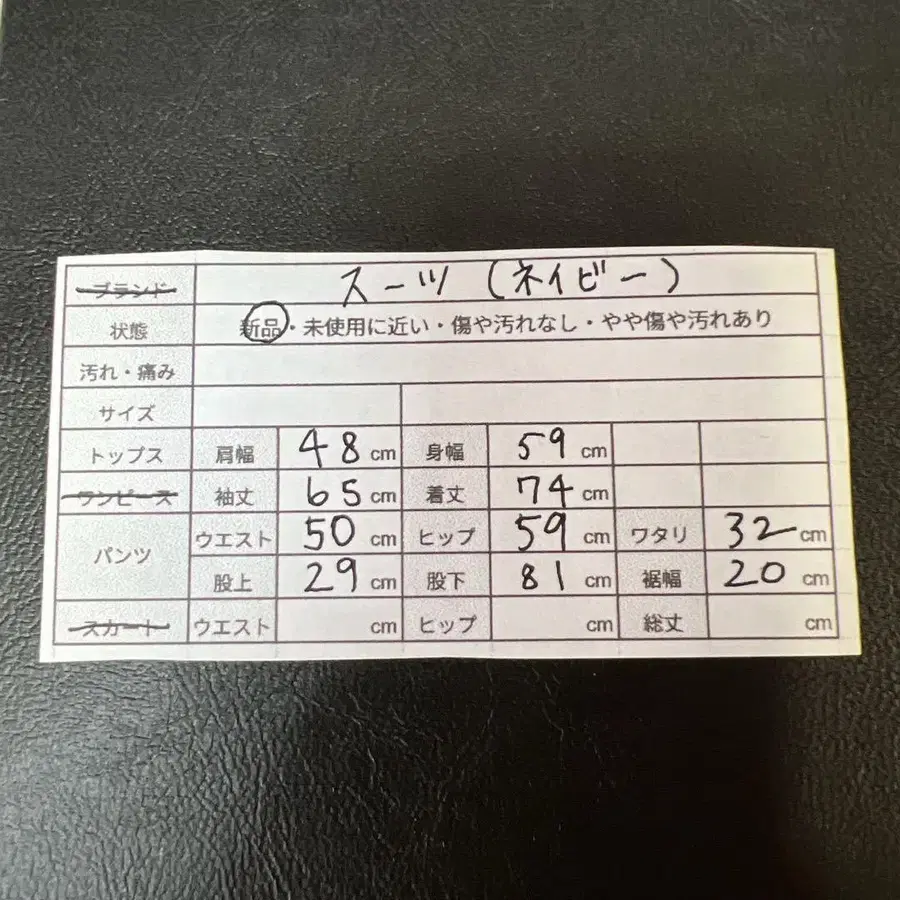 ブランド スーツ (ネイビー)
状態 新品・未使用に近い・傷や汚れなし・やや傷や汚れあり
汚れ・痛み
サイズ
トップス 肩幅 48 cm 身幅 59 cm
ワンピース 袖丈 65 cm 着丈 74 cm
パンツ ウエスト 50 cm ヒップ 59 cm ワタリ 32 cm
股上 29 cm 股下 81 cm 裾幅 20 cm
スカート ウエスト cm ヒップ cm 総丈 cm